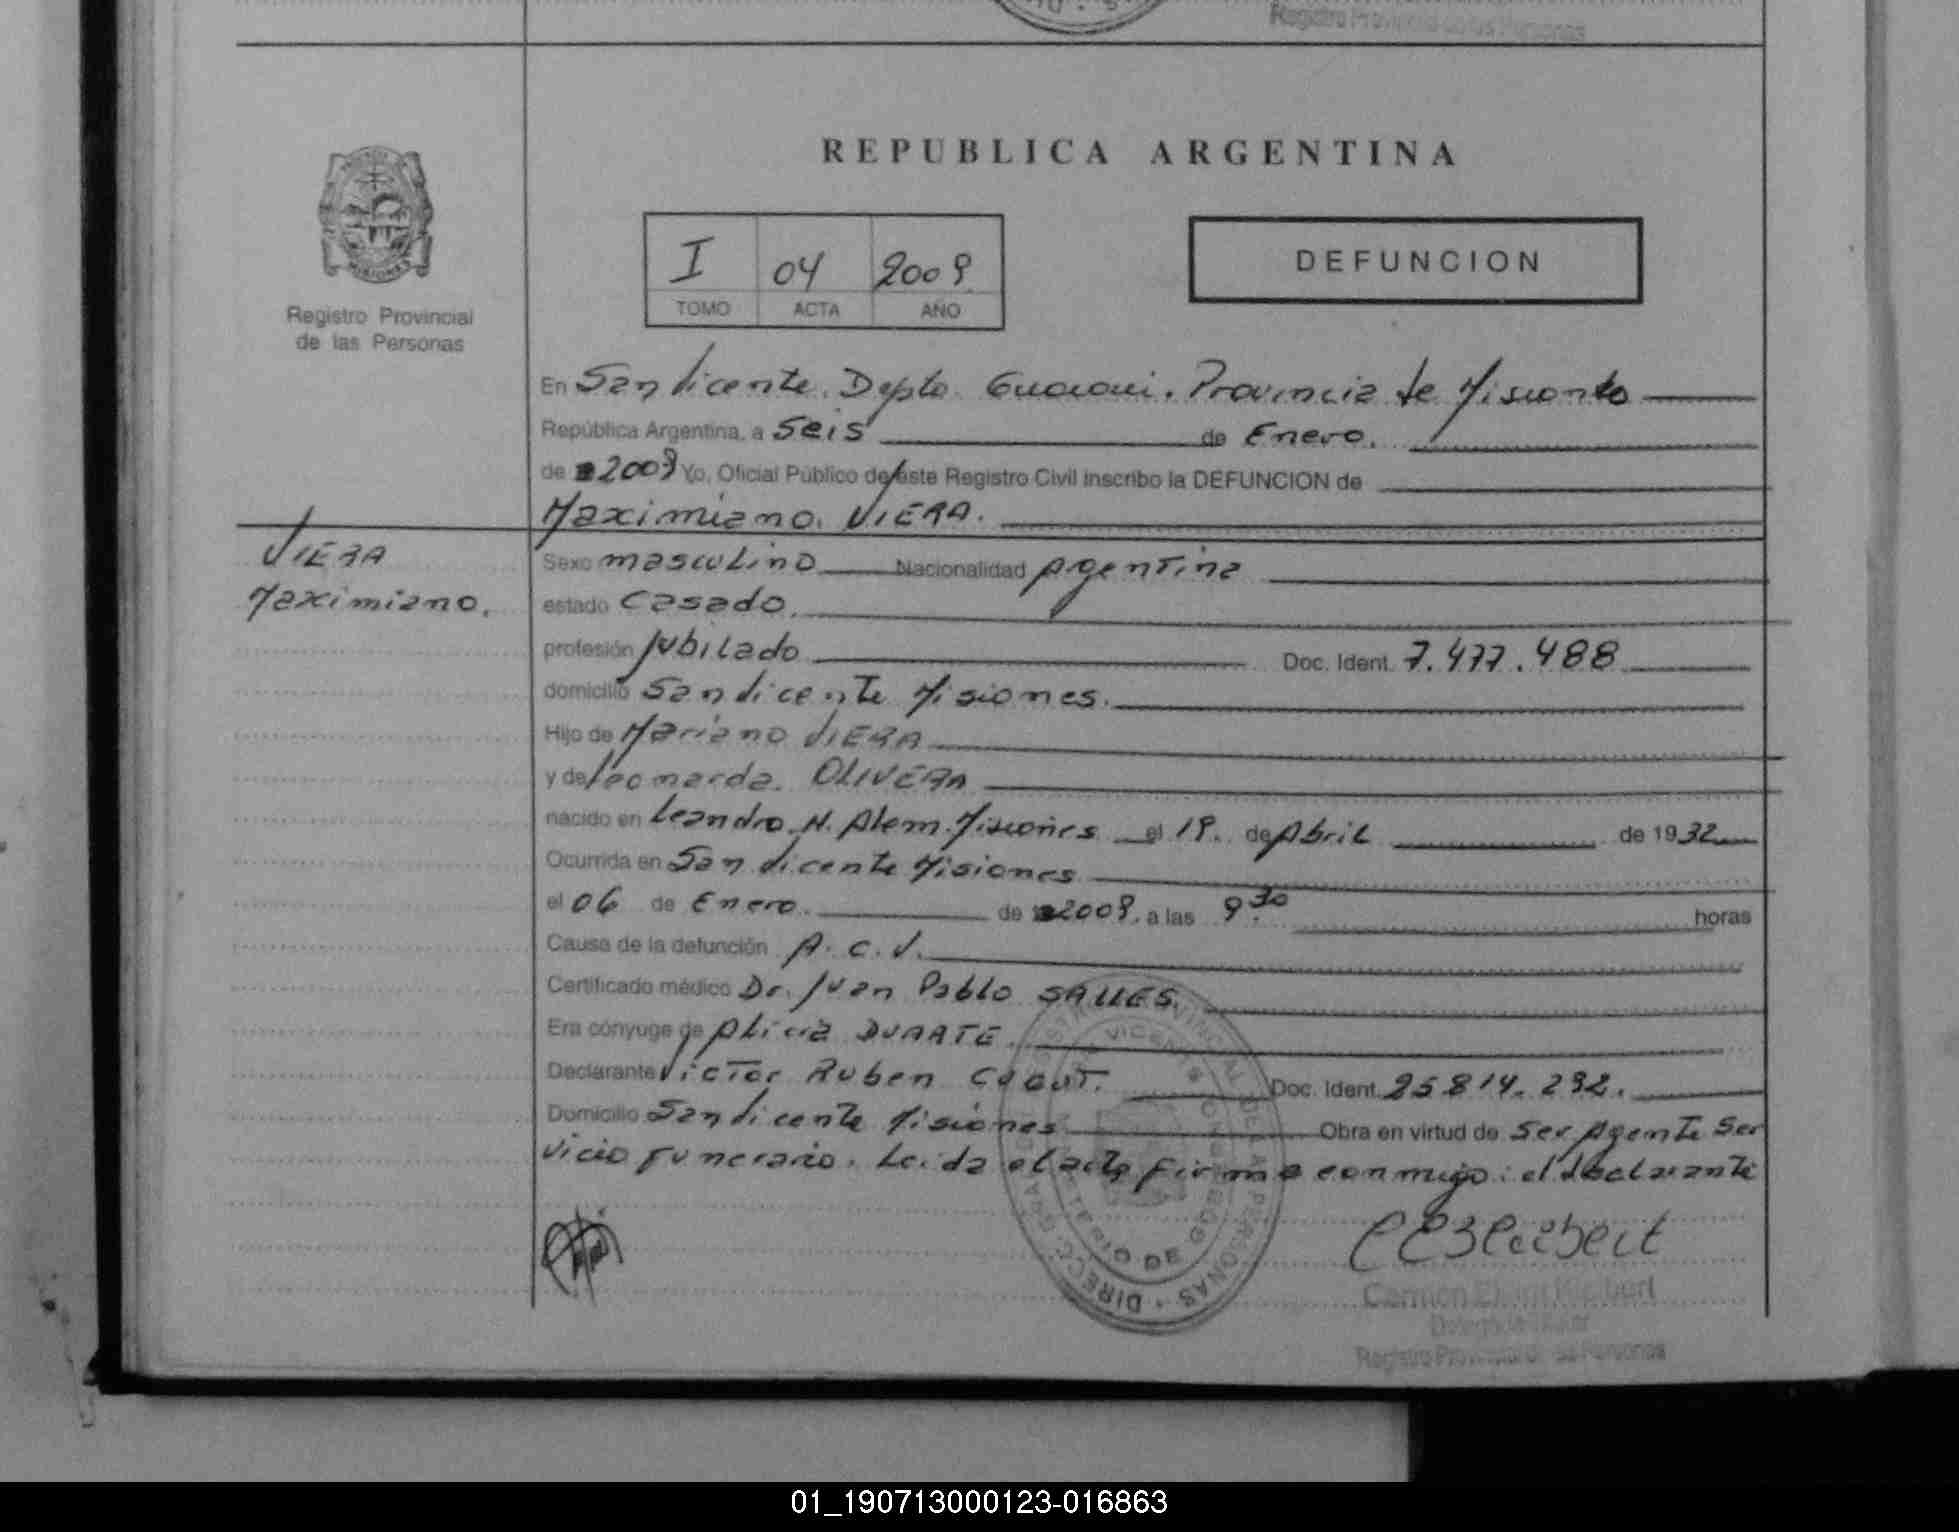 Registro Provincial de las Personas
REPUBLICA ARGENTINA
I 04 2009
TOMO ACTA AÑO
DEFUNCION
MISIONES
Registro Provincial
de las Personas
En San Vicente. Depto. Guarani. Provincia de Misiones
República Argentina, a Seis de Enero.
de 2009 Yo, Oficial Público de este Registro Civil inscribo la DEFUNCION de
Maximiano. VIERA.
VIERA
Maximiano.
Sexo masculino Nacionalidad Argentina
estado Casado.
profesión Jubilado Doc. Ident. 7.477.488
domicilio San Vicente Misiones.
Hijo de Mariano VIERA
y de Leonarda. OLIVERA
nacido en Leandro. N. Alem. Misiones el 19. de Abril de 1932
Ocurrida en San Vicente Misiones
el 06 de Enero. de 2009. a las 9.30 horas
Causa de la defunción A. C. V.
Certificado médico Dr. Juan Pablo SALLES.
Era cónyuge de Alicia DUARTE.
Declarante Victor Ruben Doc. Ident. 25.814.292.
Domicilio San Vicente Misiones Obra en virtud de Ser Agente Ser
vicio Funerario. Leida el acta firma conmigo: el declarante
Registro Provincial de las Personas
01_190713000123-016863